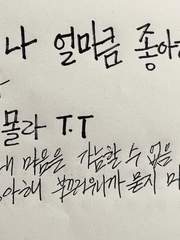 나 얼마큼 좋아
몰라 T.T
내 마음은 가늠할 수 없음
좋아해 부끄러우니까 묻지 마